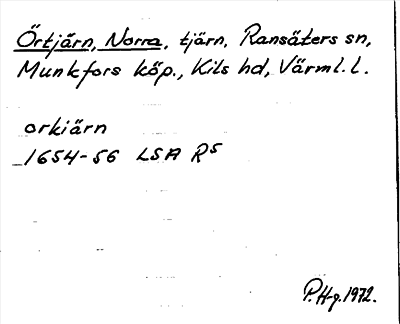 Örtjärn, Norra, tjärn, Ransäters sn,
Munkfors köp., Kils hd, Värml. l.
orkiärn
1654-56 LSA R5
P. H-g. 1972.